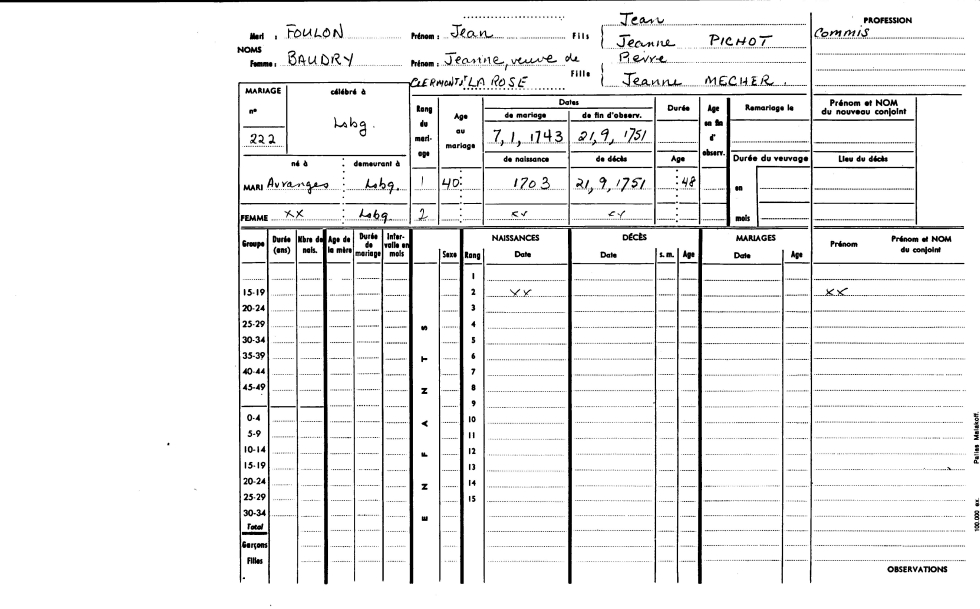 Jean
PROFESSION
Mari : FOULON Prénom : Jean Fils Jeanne PICHOT Commis
NOMS
Femme : BAUDRY Prénom : Jeanne, veuve de Pierre
CLERMONT dt LA ROSE Fille Jeanne MECHER.
MARIAGE célébré à Rang du mari-age Age au mariage Dates Durée Age en fin d'observ. Remariage le Prénom et NOM du nouveau conjoint
n° de mariage de fin d'observ.
222 Lsbg. 7, 1, 1743 21, 9, 1751
né à demeurant à de naissance de décès Age Durée du veuvage Lieu du décès
MARI Avranges Lsbg. 1 40 1703 21, 9, 1751 48 en
FEMME xx Lsbg. 2 xx xx mois
Groupe Durée (ans) Nbre de nais. Age de la mère Durée de mariage Inter-valle en mois NAISSANCES DÉCÈS MARIAGES Prénom Prénom et NOM du conjoint
Sexe Rang Date Date s. m. Age Date Age
1
15-19 2 xx xx
20-24 3
25-29 4
30-34 5
35-39 6
40-44 7
45-49 8
9
0-4 10
5-9 11
10-14 12
15-19 13
20-24 14
25-29 15
30-34
Total
Garçons
Filles
ENFANTS
OBSERVATIONS
100.000 ex. Pallas Malakoff.